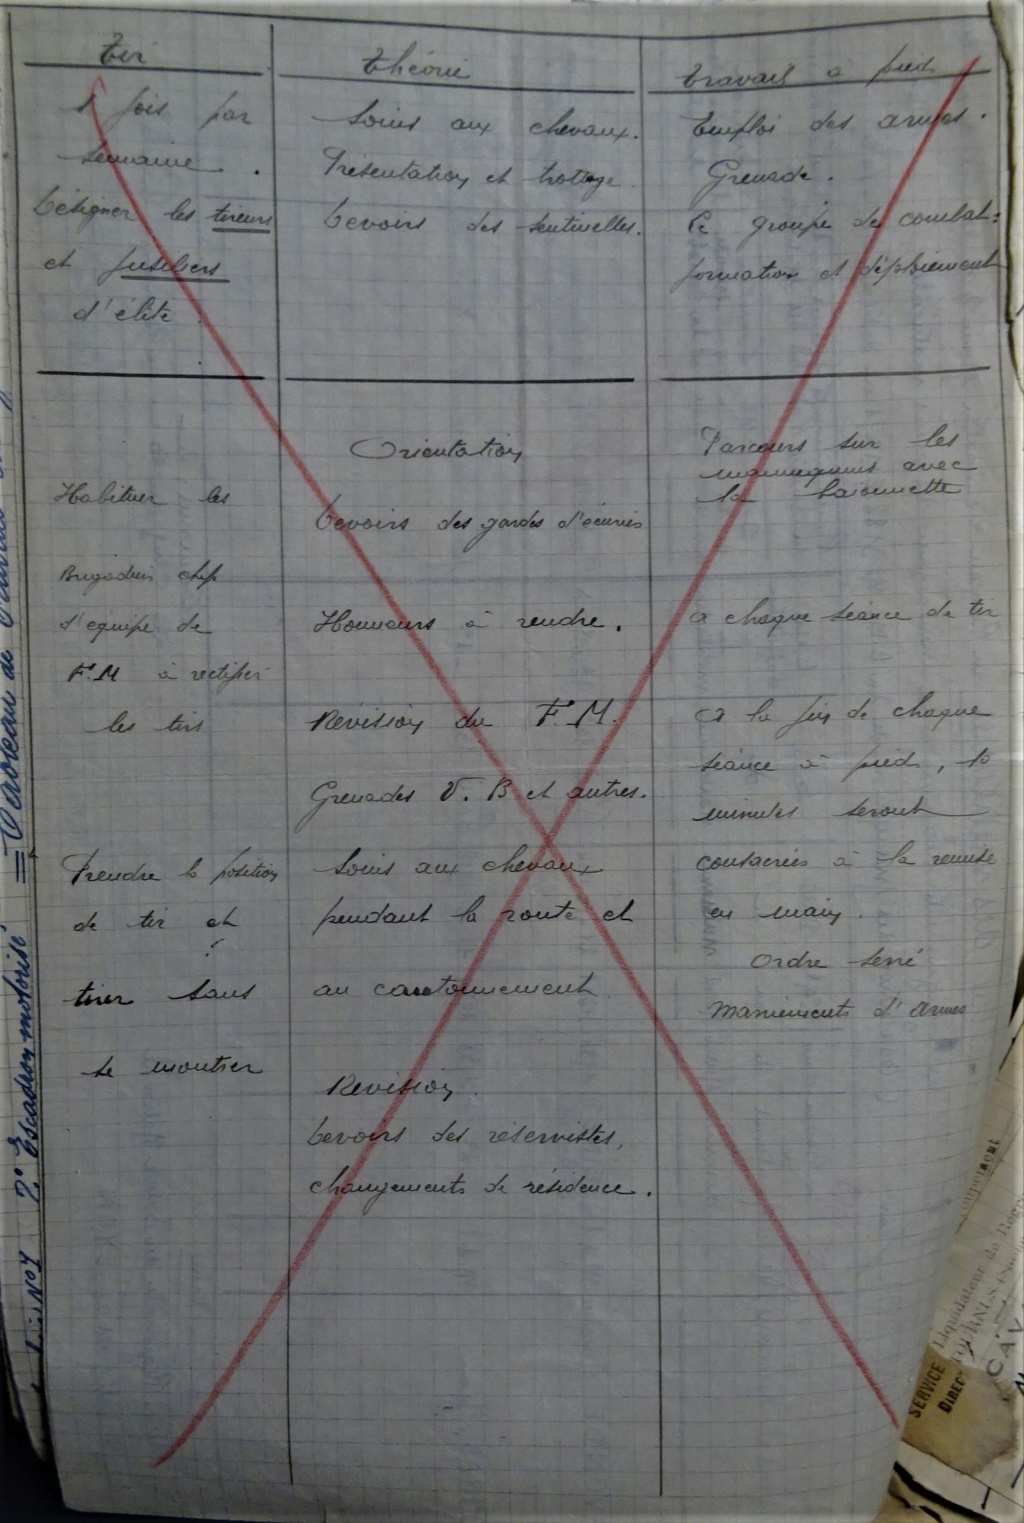 Tir
1 fois par
semaine.
Désigner les tireurs
et fusiliers
d'élite
Habituer les
Brigadiers chef
d'équipe de
F.M à rectifier
les tirs
Prendre la position
de tir et
tirer sans
se montrer
Théorie
Soins aux chevaux.
Présentation et trottage
Devoirs des sentinelles.
Orientation
Devoirs des gardes d'écuries
Honneurs à rendre.
Révision du F.M.
Grenades V.B et autres.
Soins aux chevaux
pendant la route et
au cantonnement
Révision.
Devoirs des réservistes,
changements de résidence.
Travail à pied
Emploi des armes.
Grenade.
Le groupe de combat:
formation et déploiement
Parcours sur les
mannequins avec
la baionnette
a chaque séance de tir
A la fin de chaque
séance à pied, 10
minutes seront
consacrées à la remise
en main.
Ordre serré
Maniements d'Armes
N07 2° Escadron motorisé = Tableau de
SERVICE Liquidateur de
DIREC
CAV